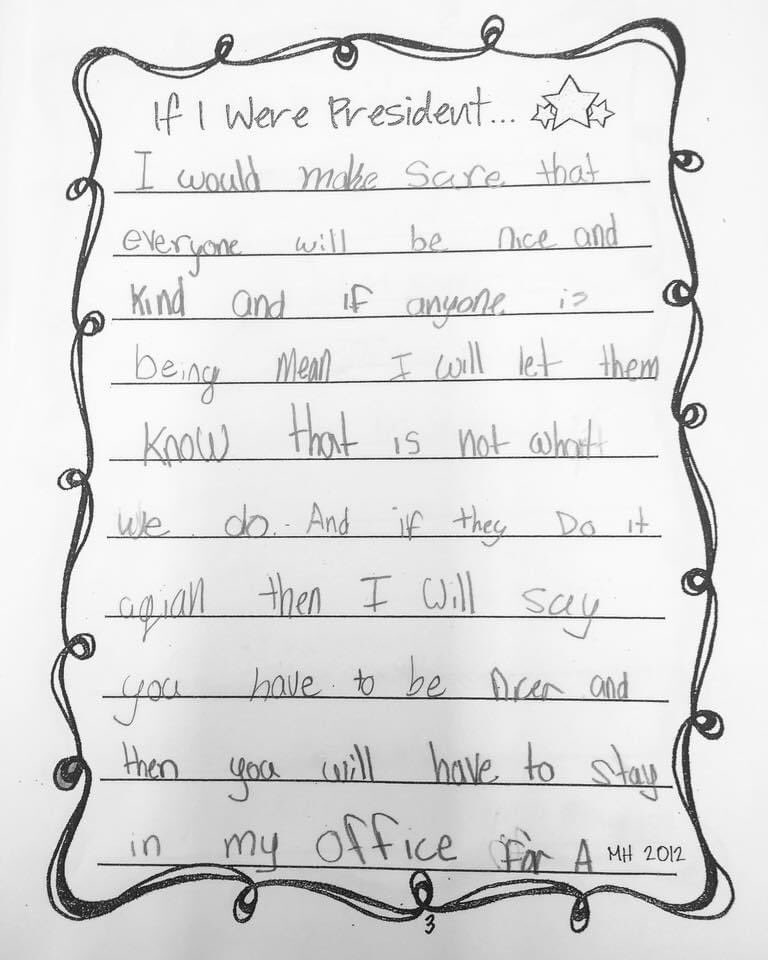 If I Were President...
I would make sure that
everyone will be nice and
kind and if anyone is
being mean I will let them
know that is not what
we do. And if they Do it
agian then I will say
you have to be nicer and
then you will have to stay
in my office for A MH 2012
3